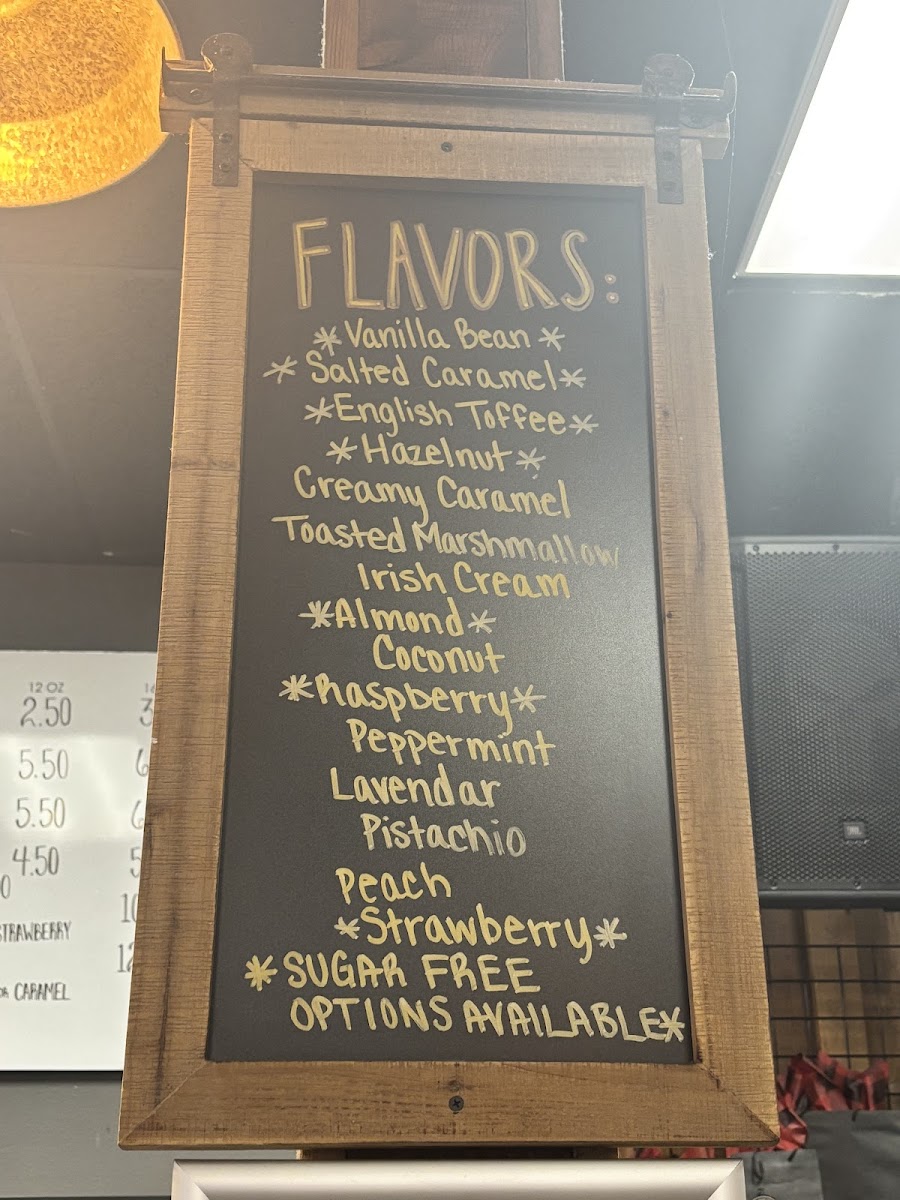 FLAVORS:
*Vanilla Bean*
* Salted Caramel*
*English Toffee*
*Hazelnut*
Creamy Caramel
Toasted Marshmallow
Irish Cream
*Almond*
Coconut
*Raspberry*
Peppermint
Lavendar
Pistachio
Peach
*Strawberry*
* SUGAR FREE
OPTIONS AVAILABLE*
12 OZ
2.50
5.50
5.50
4.50
STRAWBERRY
OR CARAMEL
JBL